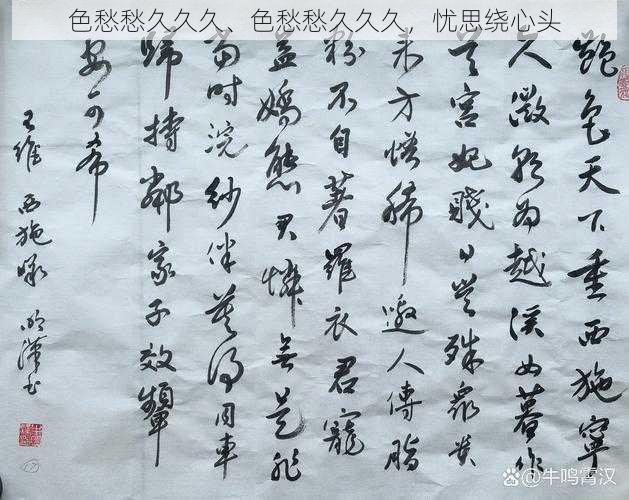 色愁愁久久久、色愁愁久久久，忧思绕心头
艳色天下重西施宁
久微朝为越溪女暮作
吴宫妃贱日岂殊众贵
来方悟稀邀人傅脂
粉不自着罗衣君宠
益娇态君怜无是非
当时浣纱伴莫得同车
归持邻家子效颦
安可希
王维西施咏
百家号@牛鸣霄汉